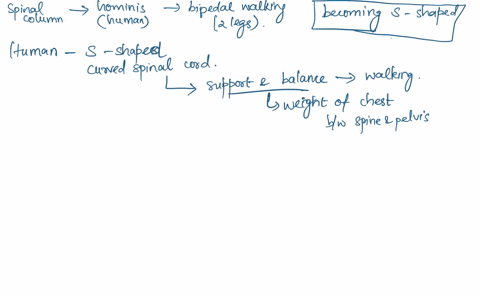 Spinal column → hominis (human) → bipedal walking (2 legs).
becoming S-shaped
Human - S-shaped
curved spinal cord.
↳ support & balance → walking.
↳ weight of chest
b/w spine & pelvis